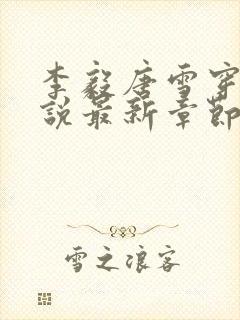 李毅唐雪穿
说最新章节
雪之浪客